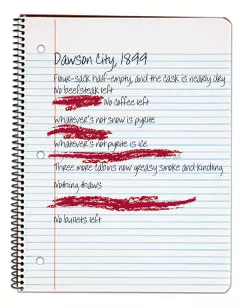 Dawson City, 1899
Flour-sack half-empty, and the cask is nearly dry
No beefsteak left
No coffee left
Whatever's not snow is pyrite
Whatever's not pyrite is ice
Three more cabins now greasy smoke and kindling
Nothing thaws
No bullets left